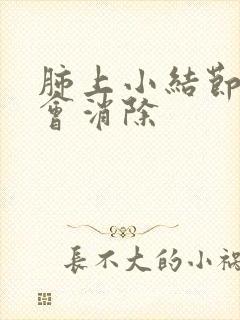 肺上小結節
會消除
長不大的小禍